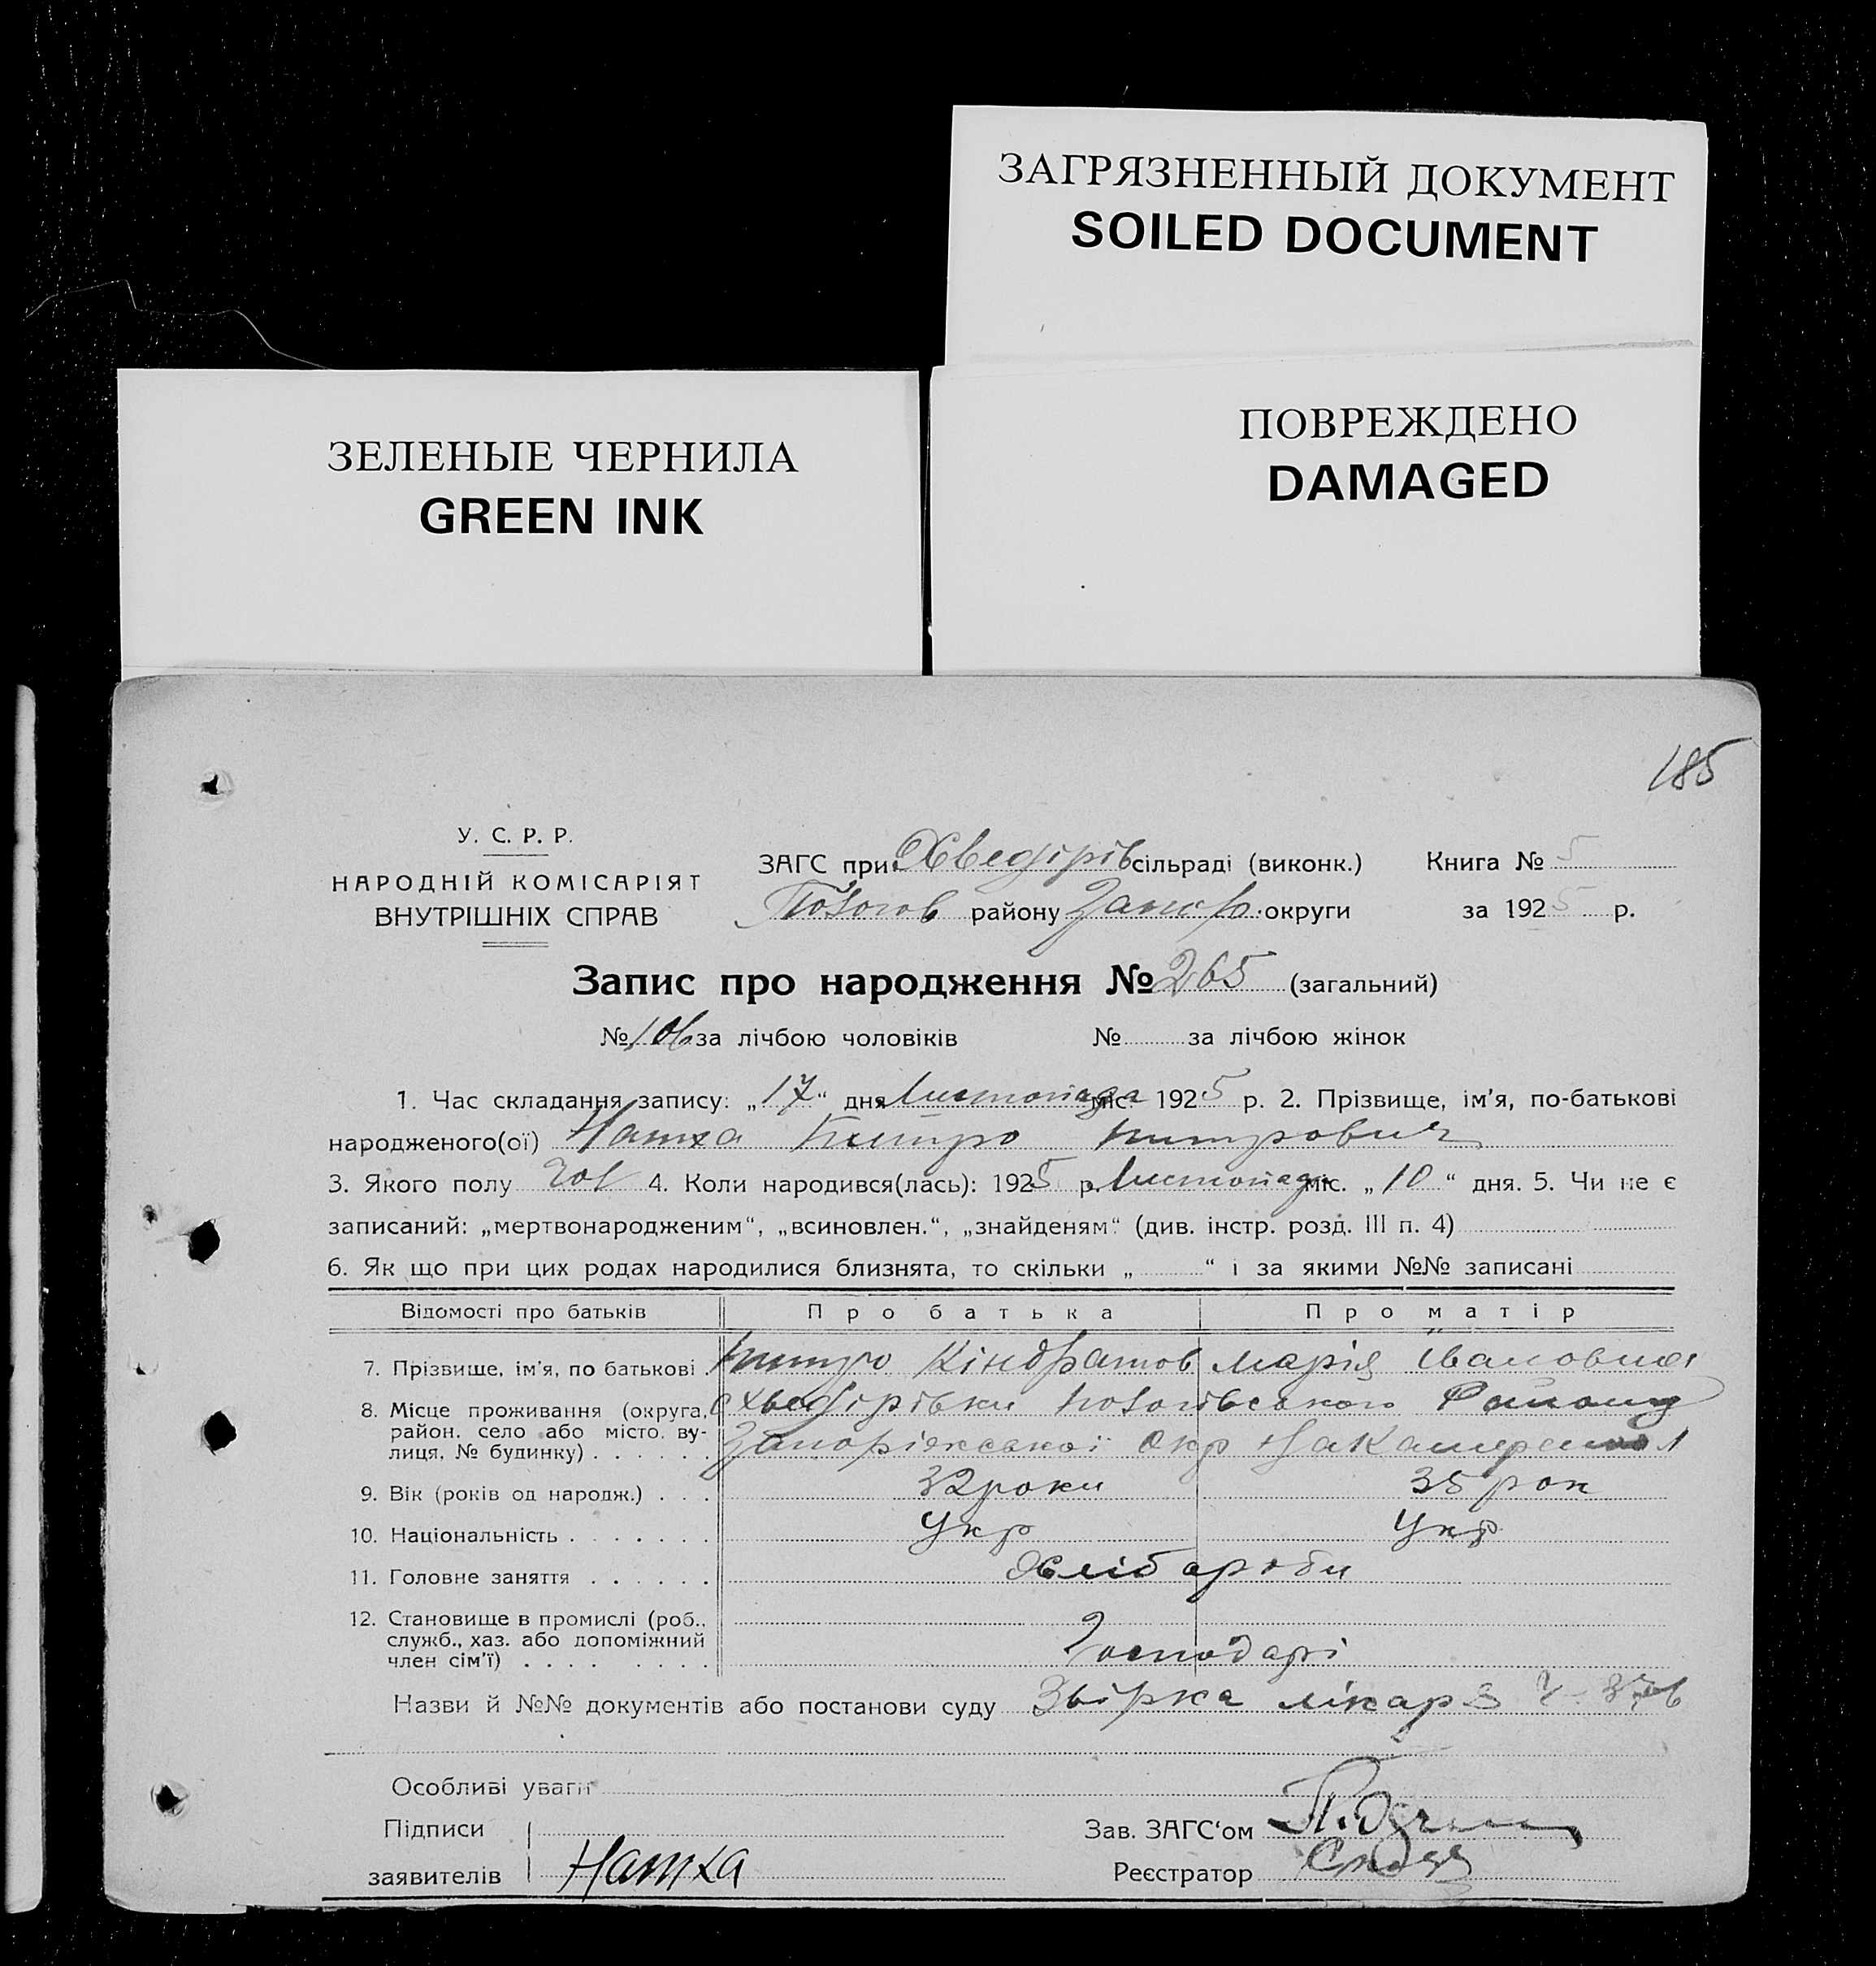 ЗАГРЯЗНЕННЫЙ ДОКУМЕНТ
SOILED DOCUMENT
ЗЕЛЕНЫЕ ЧЕРНИЛА
GREEN INK
ПОВРЕЖДЕНО
DAMAGED
185
У. С. Р. Р.
НАРОДНІЙ КОМІСАРІЯТ
ВНУТРІШНІХ СПРАВ
ЗАГС при Хведірів сільраді (виконк.) Книга № 5
Пологов району Запор. округи за 1925 р.
Запис про народження № 265 (загальний)
№ 106 за лічбою чоловіків № за лічбою жінок
1. Час складання запису: „17“ дня Листопада міс. 1925 р. 2. Прізвище, ім’я, по-батькові
народженого(ої) Натха Питро питрович
3. Якого полу чол 4. Коли народився(лась): 1925 р. Листопада міс. „10“ дня. 5. Чи не є
записаний: „мертвонародженим“, „всиновлен.“, „знайденям“ (див. інстр. розд. III п. 4)
6. Як що при цих родах народилися близнята, то скільки „ “ і за якими №№ записані
Відомості про батьків Про батька Про матір
7. Прізвище, ім’я, по батькові питро Кіндратов Марія Івановна
8. Місце проживання (округа, Хведірівки пологівського Району
район, село або місто, ву-
лиця, № будинку) Запоріжської Окр
9. Вік (років од народж.) 32 роки 35 рок
10. Національність Укр Укр
11. Головне заняття Хліб ароби
12. Становище в промислі (роб.,
служб., хаз. або допоміжний
член сім’ї) Господарі
Назви й №№ документів або постанови суду Звірка лікар
Особливі уваги
Підписи
Зав. ЗАГС‘ом
заявителів Натха
Реєстратор